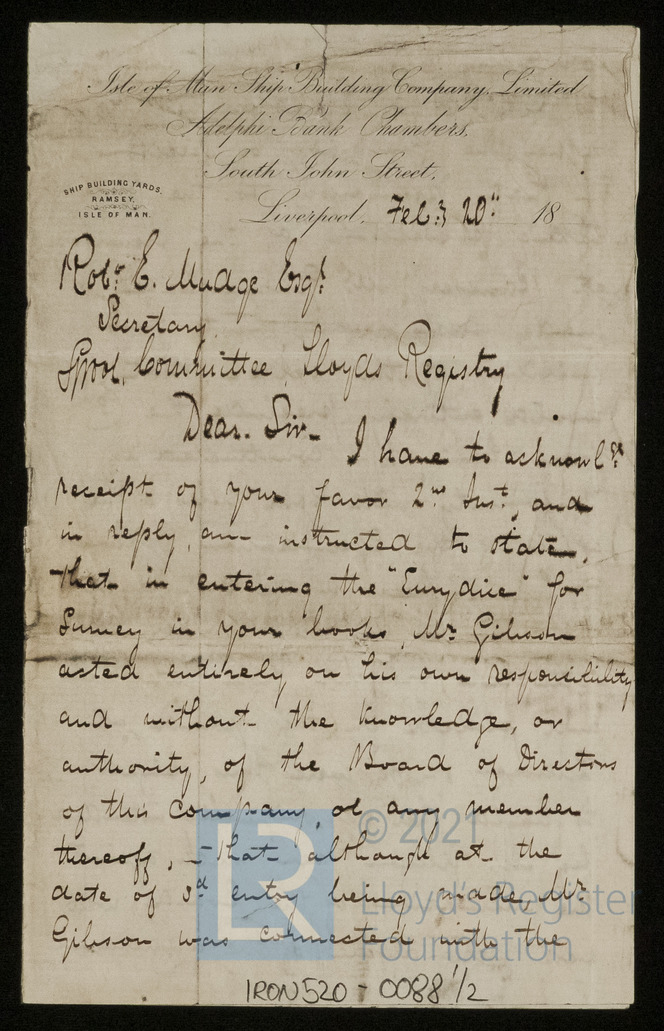 Isle of Man Ship Building Company, Limited
Adelphi Bank Chambers,
South John Street,
SHIP BUILDING YARDS,
RAMSEY,
ISLE OF MAN.
Liverpool, Feb:y 20" 18
Robt. E. Mudge Esqr.
Secretary
Lpool, Committee, Lloyds Registry
Dear. Sir-
I have to acknowlge
receipt of your favor 2nd Inst., and
in reply, am instructed to state,
that in entering the "Eurydice" for
Survey in your books, Mr. Gibson
acted entirely on his own responsibility
and without the knowledge, or
authority, of the Board of Directors
of this company, or any member
thereoff, - that although at the
date of sd entry being made, Mr.
Gibson was connected with the
© 2021
Lloyd's Register
Foundation
LR
IRON520 - 0088 1/2